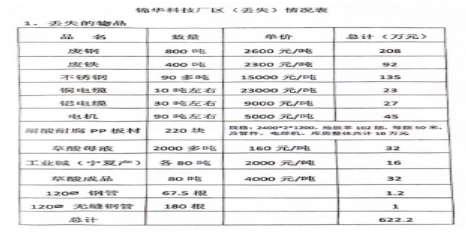 锦华科技厂区（丢失）情况表
1．丢失的物品
品 名 数量 单价 总计（万元）
废钢 800 吨 2600 元/吨 208
废铁 400 吨 2300 元/吨 92
不锈钢 90 多吨 15000 元/吨 135
铜电缆 10 吨左右 23000 元/吨 23
铝电缆 30 吨左右 9000 元/吨 27
电机 90 吨左右 5000 元/吨 45
耐酸耐腐 PP 板材 220 块 规格：2400*2*1200、
草酸母液 2000 多吨 160 元/吨 32
工业碱（宁夏产） 各 80 吨 2000 元/吨 16
草酸成品 80 吨 4000 元/吨 32
120# 钢管 67.5 根 1.2
120# 无缝钢管 180 根 1
总计 622.2